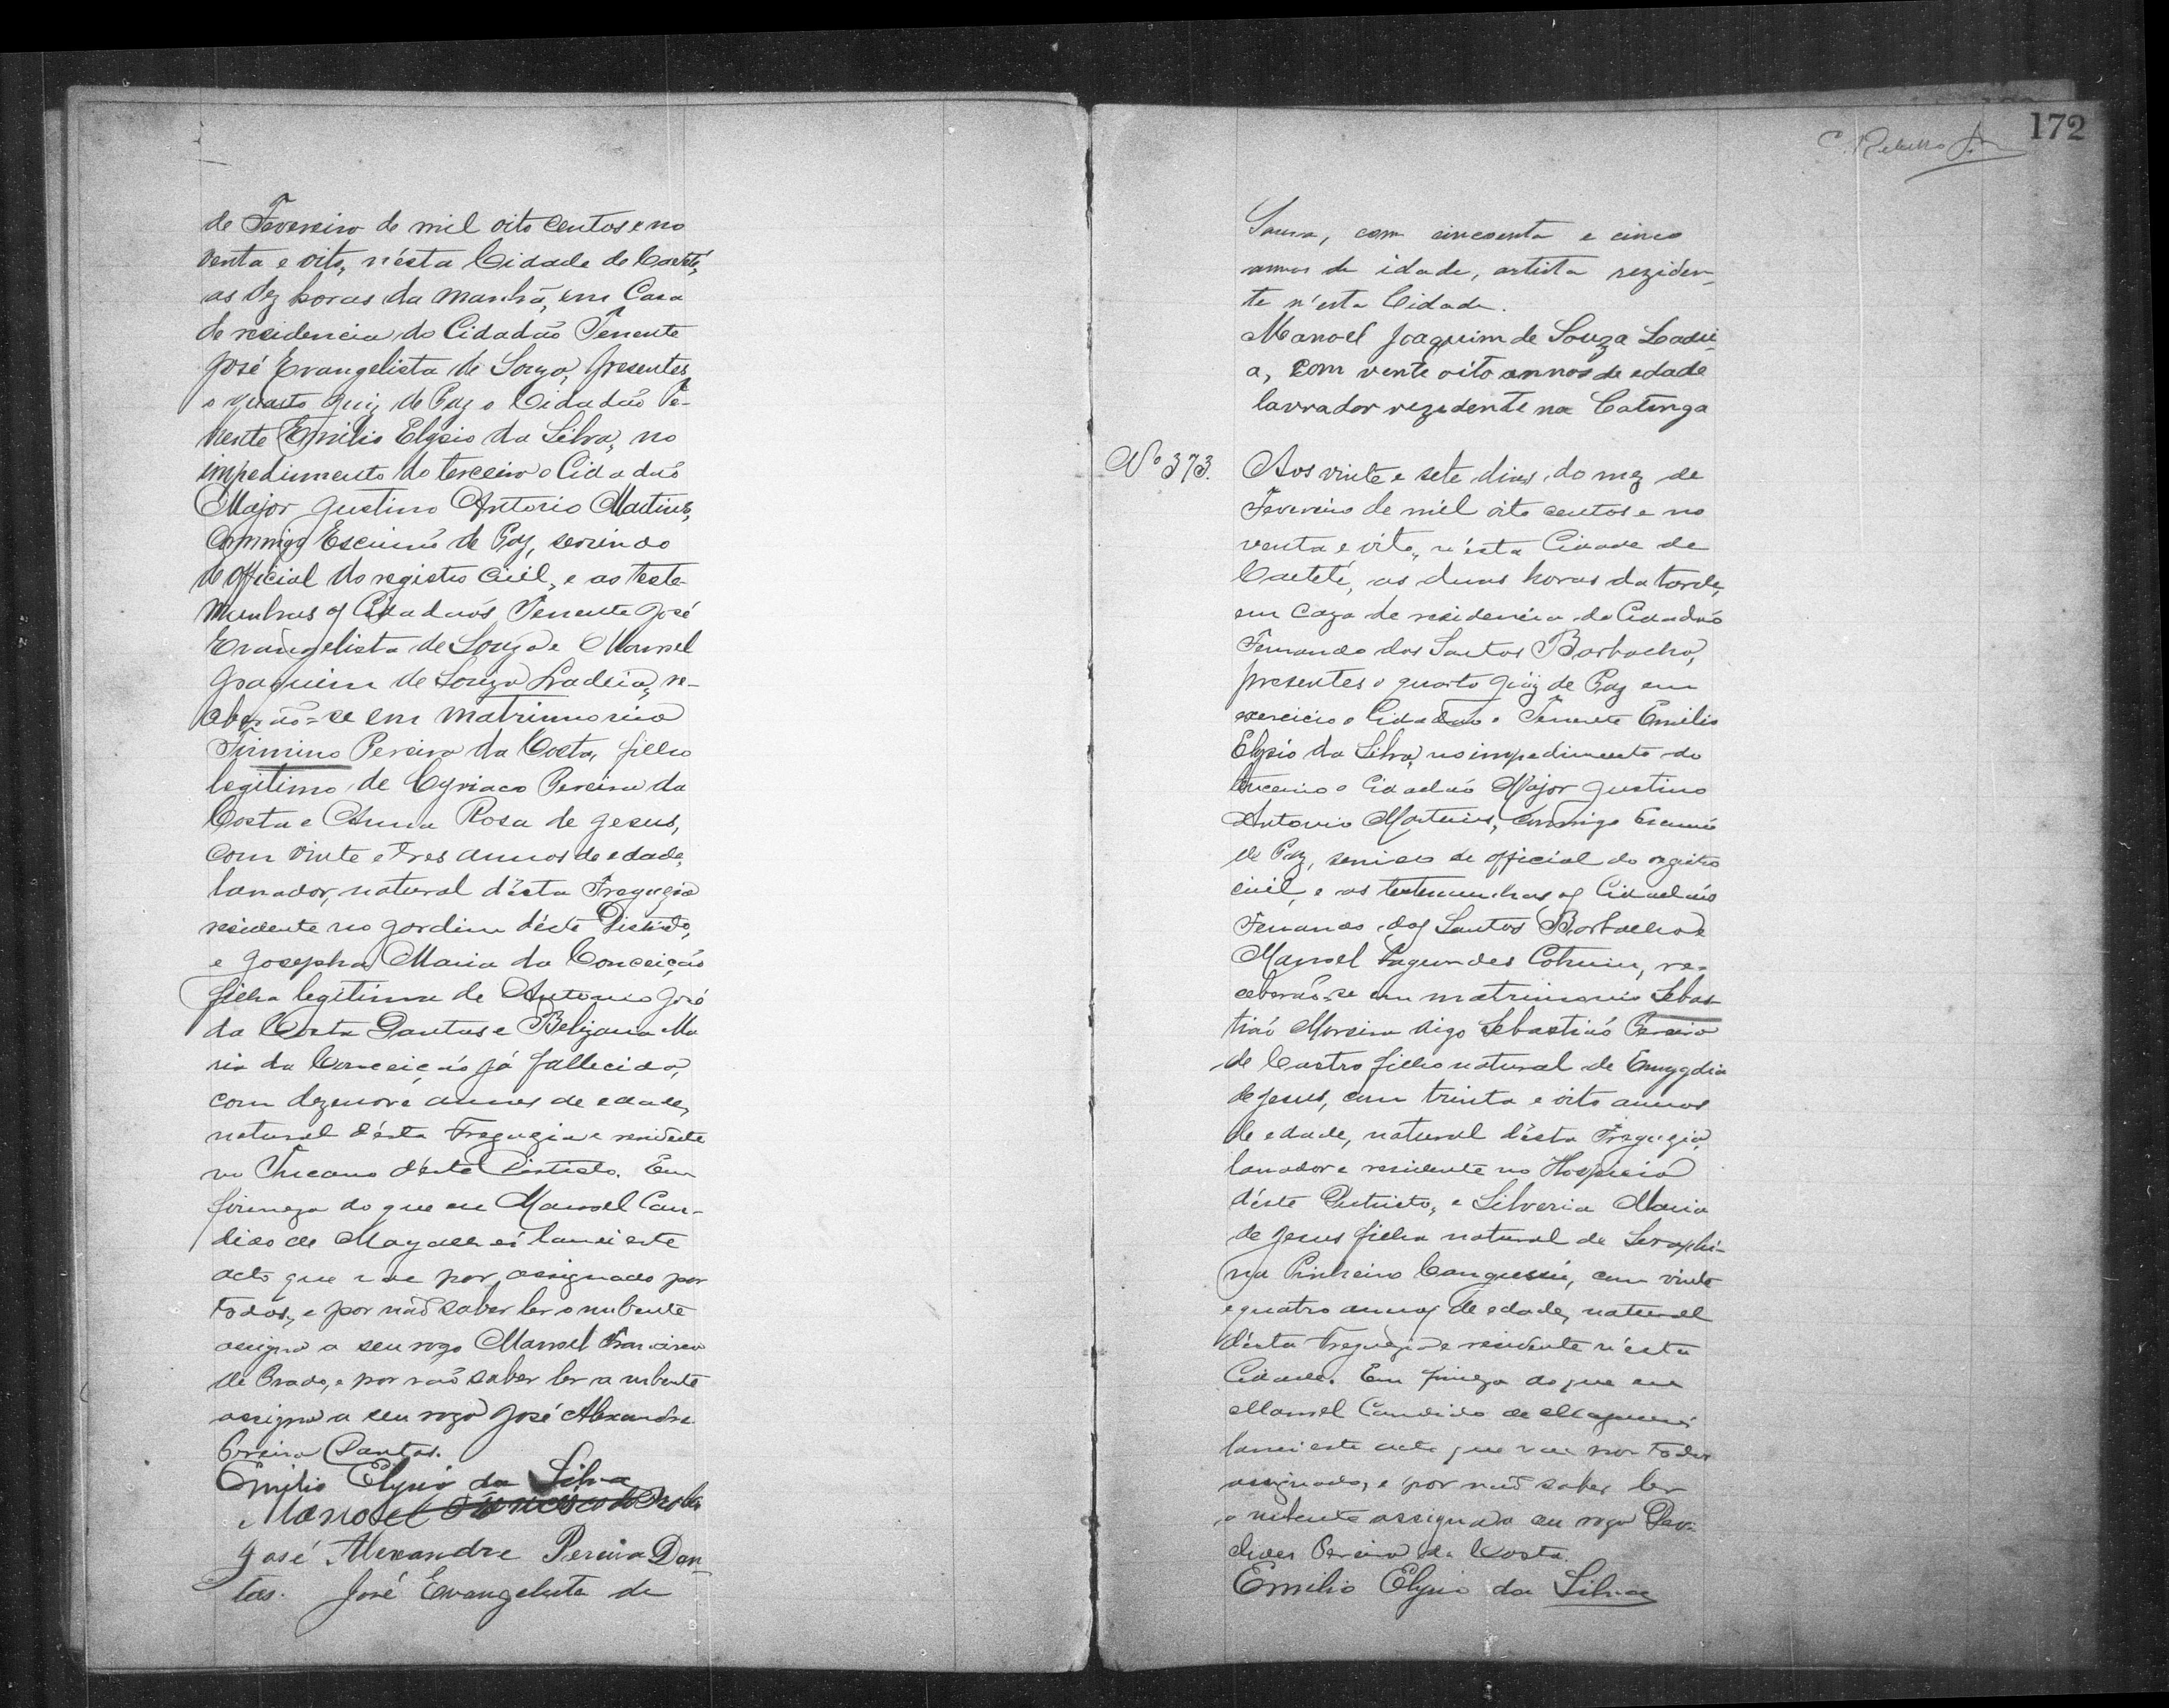 de Fevereiro de mil oito centos e no
venta e oito, n'ésta Cidade de Caeteté,
as dez horas da manhã, em Casa
de residencia do Cidadão Tenente
José Evangelista de Souza, presentes
o quarto Juiz de Paz o Cidadão Te-
nente Emilio Elysio da Silva, no
impedimento do terceiro o Cidadão
Major Justino Antonio Martins,
Commigo Escrivão de Paz, servindo
de official do registro civil, e as teste
munhas os Cidadãos Tenente José
Evangelista de Souza e Manoel
Joaquim de Souza Ladeia, re-
ceberão-se em matrimonio
Firmino Pereira da Costa, filho
legitimo de Cyriaco Pereira da
Costa e Anna Rosa de Jesus,
com vinte e tres annos de edade,
lavrador, natural d'ésta Freguezia
residente no Jardim d'éste Districto,
e Josepha Maria da Conceição
filha legitima de Antonio José
da Costa Dantas e Belizaria Ma
ria da Conceição já fallecida,
com dezenove annos de edade,
natural d'ésta Freguezia e residente
no d'éste Districto. Em
firmeza do que eu Manoel Can-
dido de lancei este
acto que vae por assignado por
todos, e por não saber ler o nubente
assigna a seu rogo Manoel Francisco
de Prado, e por não saber ler a nubente
assigna a seu rogo José Alexandre
Pereira Dantas.
Emilio Elysio da Silva
Manoel Francisco do
José Alexandre Pereira Dan-
tas. José Evangelista de
172
C. Rebello
Souza, com cincoenta e cinco
annos de idade, artista reziden-
te n'esta Cidade.
Manoel Joaquim de Souza Ladei-
a, com vente oito annos de edade
lavrador rezedente na Catinga
Nº 373.
Aos vinte e sete dias do mez de
Fevereiro de mil oito centos e no
venta e oito, n'ésta Cidade de
Caeteté, as duas horas da tarde,
em caza de residencia do Cidadão
Fernando dos Santos Barbacho,
presentes o quarto Juiz de Paz em
exercicio o Cidadão Tenente Emilio
Elysio da Silva, no impedimento do
terceiro o Cidadão Major Justino
Antonio Martins, commigo Escrivão
de Paz, servindo de official do registro
civil, e as testemunhas os Cidadãos
Fernando dos Santos Barbacho e
Manoel Fagundes Cotrim, re-
ceberão-se em matrimonio Sebas
tião Moreira digo Sebastião Pereira
de Castro filho natural de Emygdia
de Jesus, com trinta e oito annos
de edade, natural d'ésta Freguezia,
lavrador e residente no Hospicio
d'éste Districto, e Silveria Maria
de Jesus filha natural de Seraphi-
na Pinheiro Cangussú, com vinte
e quatro annos de edade, natural
d'ésta Freguezia e residente n'ésta
Cidade. Em firmeza do que eu
Manoel Candido de
lancei este acto que vae por todos
assignado, e por não saber ler
o nubente assigna a seu rogo
Pereira da Costa.
Emilio Elysio da Silva